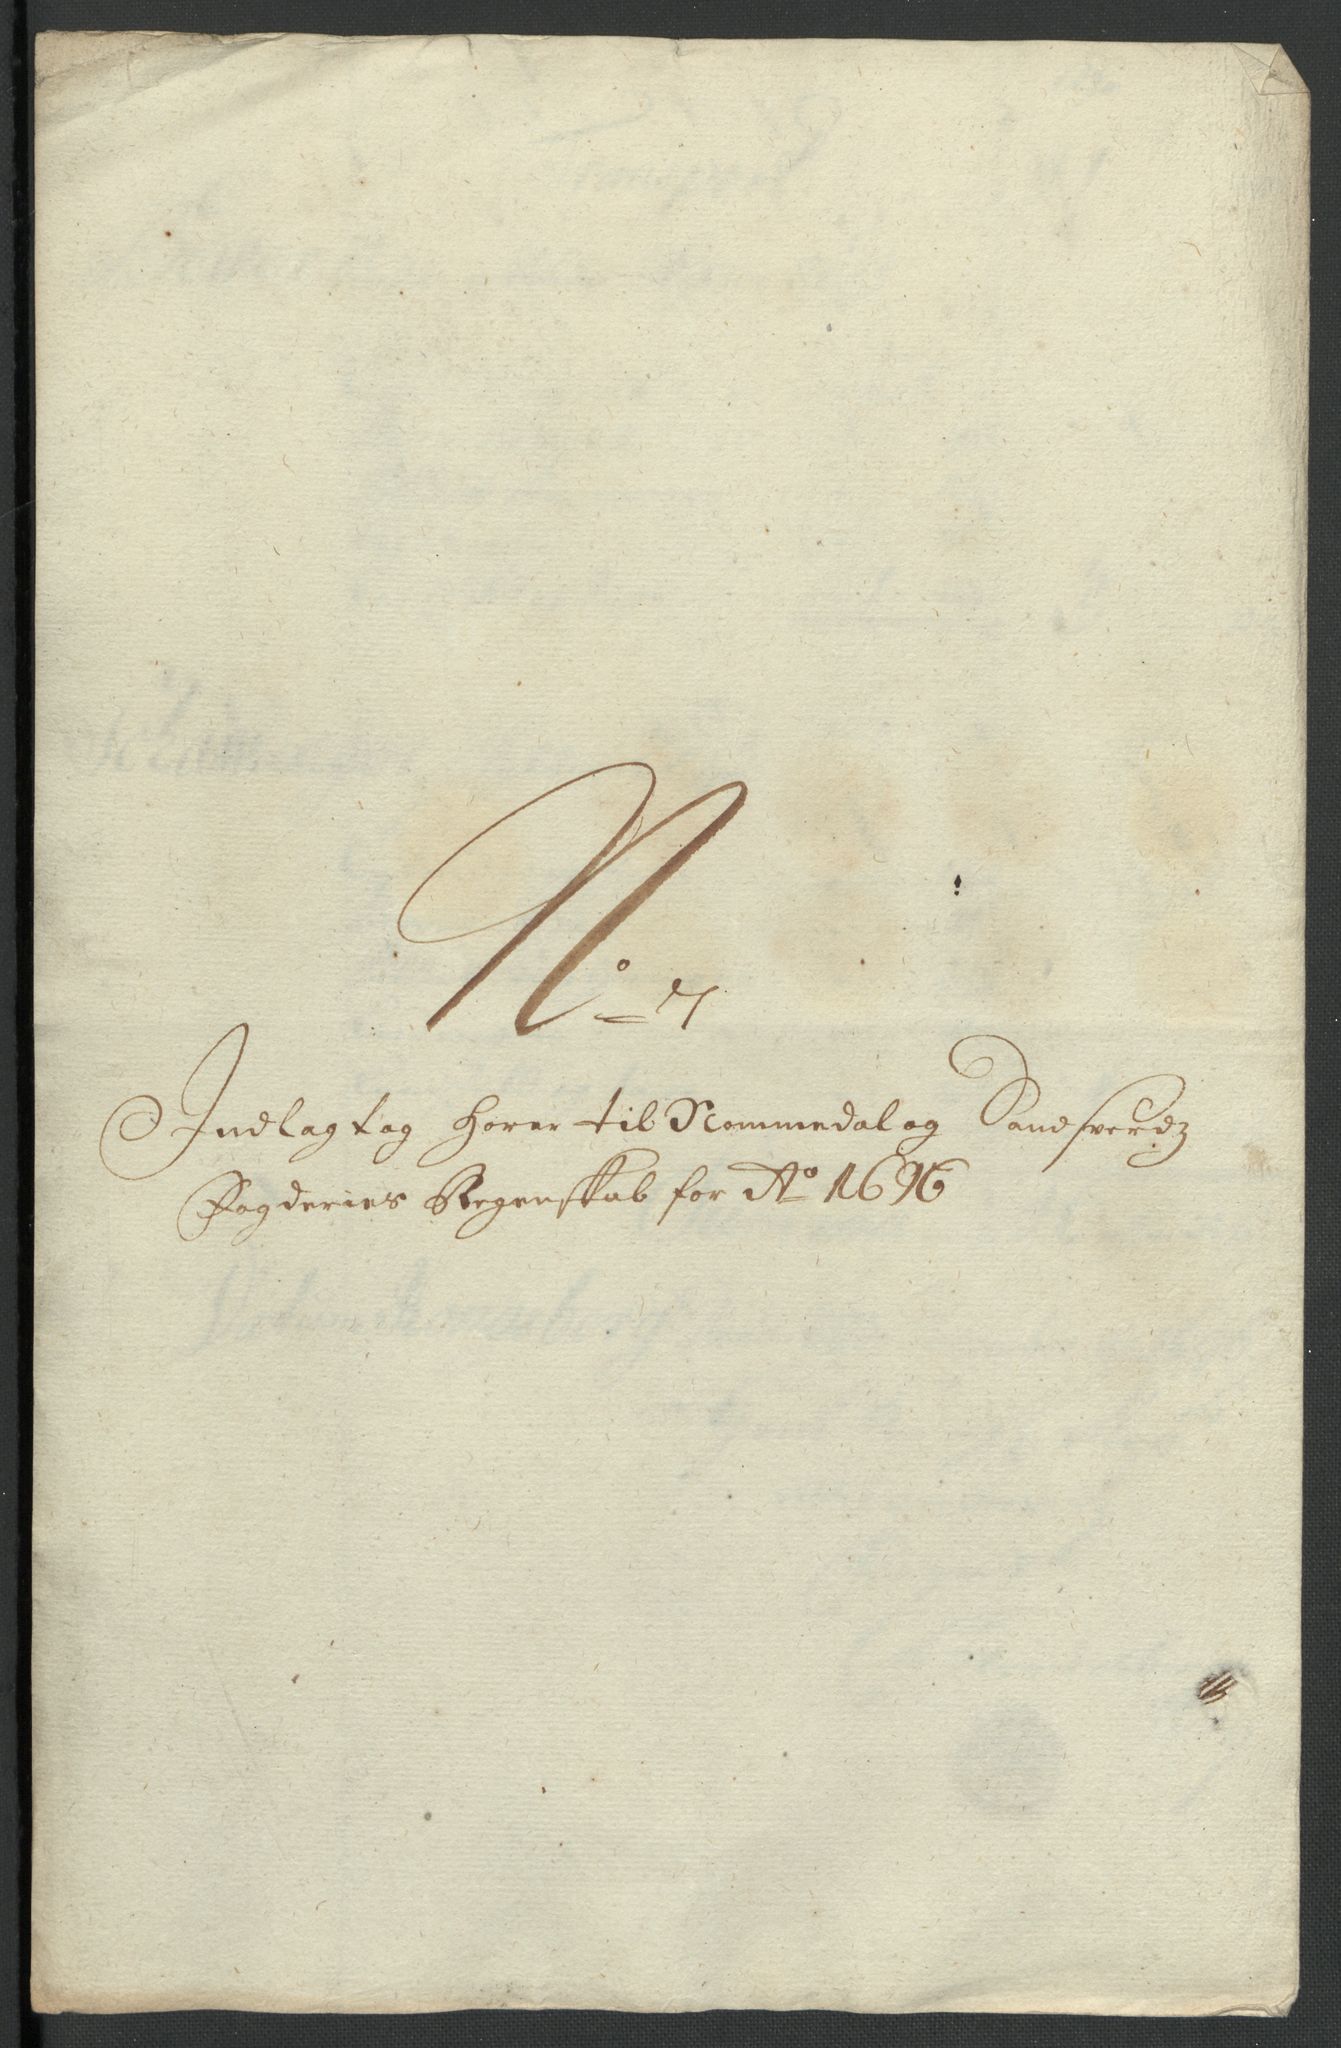 No 7
Indlagt og hører til Nommedal og Sandsverdz
Fogderies Regenskab for Ao 1696